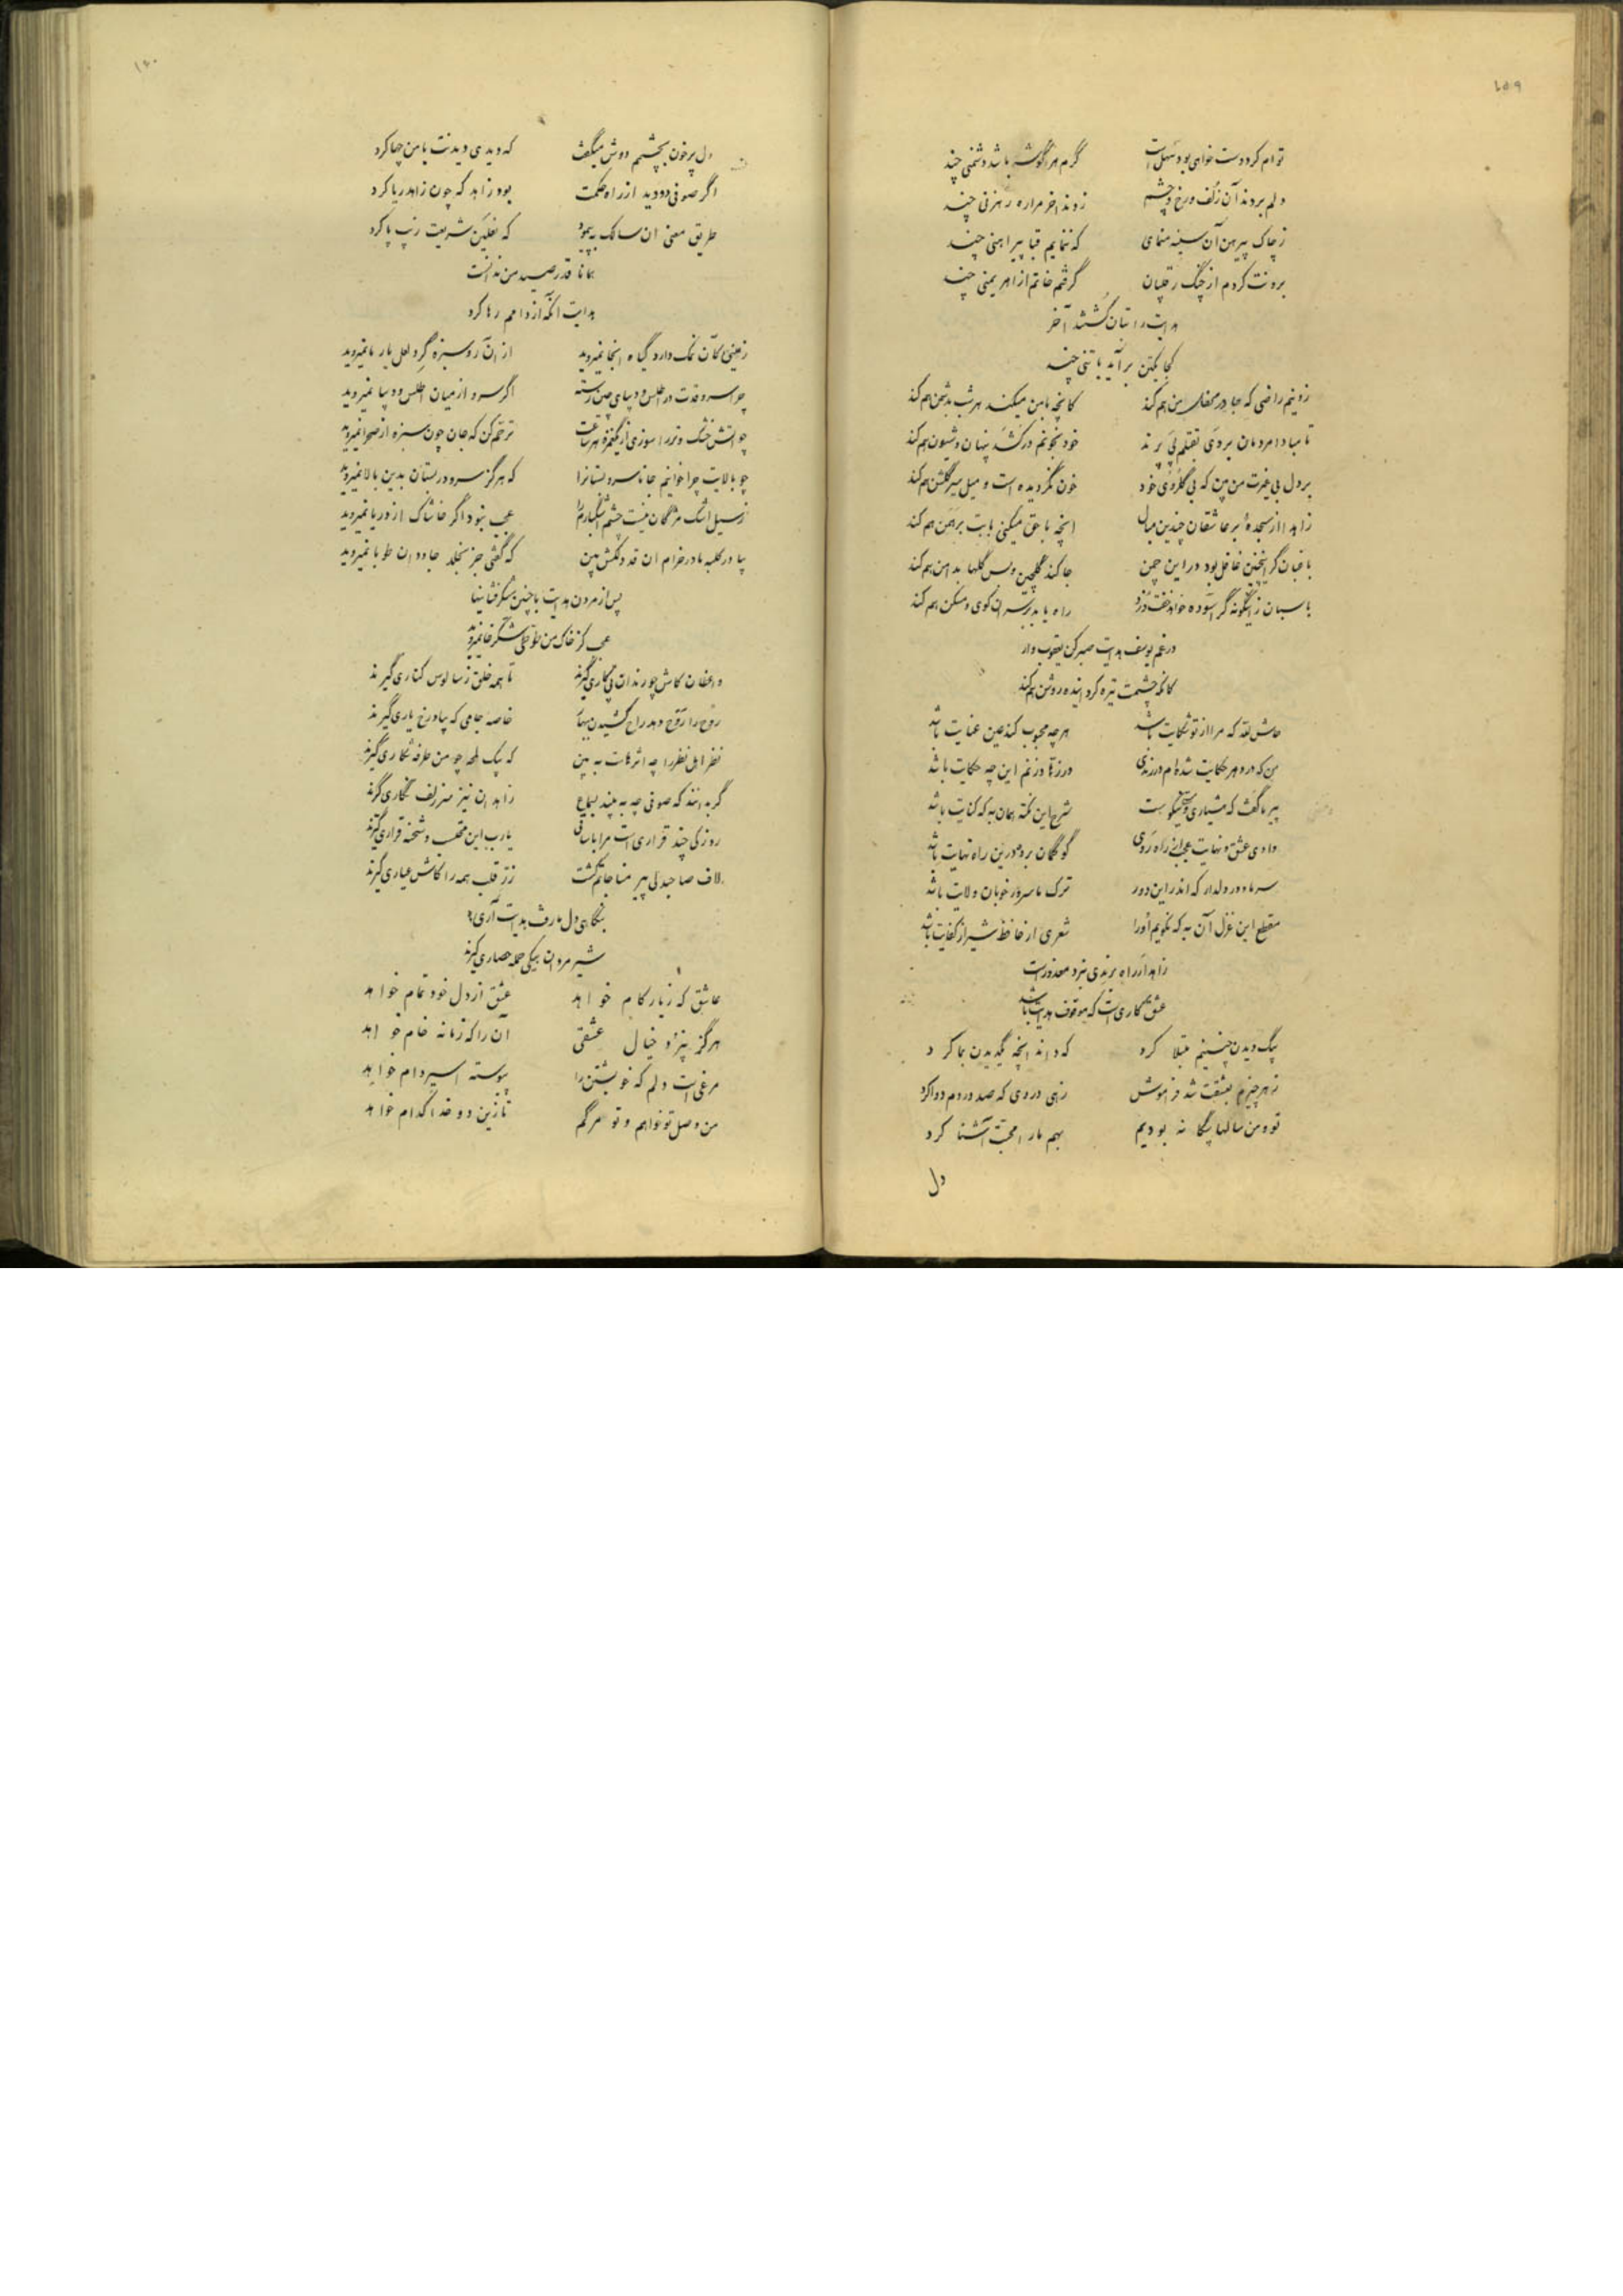 ١٥٩
توام کر دوست خواهی بود سهل است گرم هر گوشه باشد دشمنی چند
دلم بردند آن زلف و رخ و چشم زدند اخر مرا ره رهزنی چند
ز چاک پیرهن آن سینه منمای که ننمایم قبا پیراهنی چند
برونت کردم از چنگ رقیبان گرفتم خاتم از اهریمنی چند
هدایت را بتان کشتند آخر
کجا یکتن برآید با تنی چند
زو نیم راضی که جا در محفل من هم کند کانچه با من میکند هر شب بدشمن هم کند
تا مبادا مردمان بر وی بقتلم پی برند خود بخونم درکشد پنهان و شیون هم کند
بر دل بی غیرت من بین که بی گلروی خود خون نگردیده است و میل سیر گلشن هم کند
زاهدا از سجدهٔ بر عاشقان چندین مبال انچه با حق میکنی با بت برهمن هم کند
باغبان گر اینچنین غافل بود در این چمن جا کند گلچین و بس گلها بدامن هم کند
پاسبان زینگونه گر آسوده خواهد خفت دزد راه یابد بر سر آن کوی و مسکن هم کند
در غم یوسف هدایت صبر کن یعقوب وار
کانکه چشمت تیره کرد اینده روشن هم کند
حاش لله که مرا از تو شکایت باشد هرچه محبوب کند عین عنایت باشد
من که در دهر حکایت شده ام در رندی در زهد ار زنم این چه حکایت باشد
پیر ما گفت که هشیاری و مستی نیکوست شرح این نکته همان به که کنایت باشد
وادی عشق و نهایت عجبا زین راه روی گو گمان برد در این راه نهایت باشد
سر ما و در دلدار که اندر این دور ترک ما سرور خوبان ولایت باشد
مقطع این غزل آن به که نگویم او را شعری از حافظ شیراز کفایت باشد
زاهد ار راه برندی نبرد معذور است
عشق کاریست که موقوف هدایت باشد
بیک دیدن چنینم مبتلا کرد که داند انچه نگدیدن بما کرد
ز هر چیزم بعشقت شد فراموش زهی دردی که صد دردم دوا کرد
تو و من سالها بیگانه بودیم بهم ما را محبت آشنا کرد
دل
١٦٠
دل پر خون بچشمم دوش میگفت که دیدی دیدنت با من چها کرد
اگر صوفی دودید از راه حکمت بود زاهد که چون زاهد ریا کرد
طریق معنی ان سالک بپیمود که نعلین شریعت زیب پا کرد
همانا قدر صید من ندانست
هدایت آنکه از دامم رها کرد
زمینی کان نمک دارد گیاه انجا نمیروید از آن رو سبزه گرد لعل یار ما نمیروید
چرا سرو قدت در اطلس و دیبای چین رسته اگر سرو از میان اطلس و دیبا نمیروید
چو اتش خشک و تر را سوزی از کینم هر ساعت ترحم کن که جان چون سبزه از صحرا نمیروید
چو بالایت چرا خوانیم جانا سرو بستانرا که هرگز سرو در بستان بدین بالا نمیروید
ز سیل اشک مژگان نیست چشم اشکبارم را عجب نبود اگر خاشاک از دریا نمیروید
بیا در کلبه ما در خرام ان قد دلکش بین که گفتی جز بخلد جاودان طوبا نمیروید
پس از مردن هدایت با چنین شکرفشانیها
عجب کز خاک من طوطی شکرخا نمیروید
واعظان کاش چو رندان پی کاری گیرند تا همه خلق ز سالوس کناری گیرند
روح را روح دهد راح کشیدن بیها خاصه جامی که بیاد رخ یاری گیرند
نظر اهل نظر را چه اثرهاست به بین که بیک لمحه چو من طرفه شکاری گیرند
گر بدانند که صوفی چه به بیند بسماع زاهدان نیز سر زلف نگاری گیرند
روزکی چند قراری است مرا با ساقی یا رب این محتسب و شحنه قراری گیرند
لاف صاحبدلی پیر مناجاتم کشت زر قلب همه را کاش عیاری گیرند
بنگاهی دل عارف هدایت آری
شیر مردان بیکی حمله حصاری گیرند
عاشق که ز یار کام خواهد عشق از دل خود تمام خواهد
هرگز نپزد خیال عشقی آن را که زمانه خام خواهد
مرغیست دلم که خویشتن را پیوسته اسیر دام خواهد
من وصل تو خواهم و تو مرگم تا زین دو خدا کدام خواهد